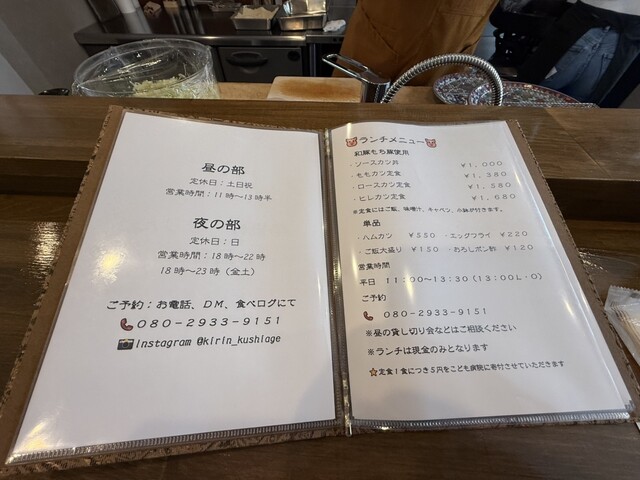 昼の部
定休日：土日祝
営業時間：11時～13時半
夜の部
定休日：日
営業時間：18時～22時
18時～23時（金土）
ご予約：お電話、DM、食べログにて
080-2933-9151
Instagram @kirin_kushiage
ランチメニュー
和豚もち豚使用
・ソースカツ丼 ￥1,000
・モモカツ定食 ￥1,380
・ロースカツ定食 ￥1,580
・ヒレカツ定食 ￥1,680
※定食にはご飯、味噌汁、キャベツ、小鉢が付きます。
単品
・ハムカツ ￥550 ・エッグフライ ￥220
・ご飯大盛り ￥150 ・おろしポン酢 ￥120
営業時間
平日 11：00～13：30（13：00L・O）
ご予約
080-2933-9151
※昼の貸し切り会などはご相談ください
※ランチは現金のみとなります
☆定食1食につき5円をこども病院に寄付させていただきます